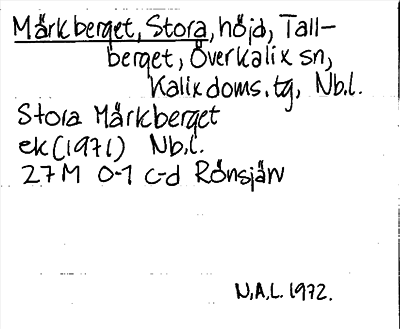 Mårkberget, Stora, höjd, Tall-
berget, Överkalix sn,
Kalix doms. tg, Nb.l.
Stora Mårkberget
ek (1971) Nb.l.
27M 0-1 c-d Rönsjärv
N.A.L. 1972.